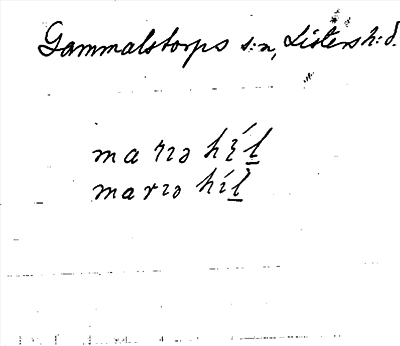 Gammalstorps s:n, Listers h:d.
marɿə hí̵l̲
marɿə híl̲